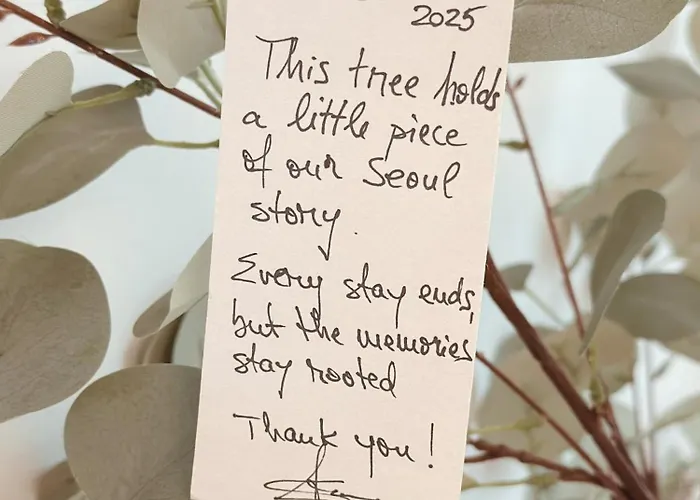 2025
This tree holds
a little piece
of our Seoul
story.
Every stay ends,
but the memories
stay rooted
Thank you!